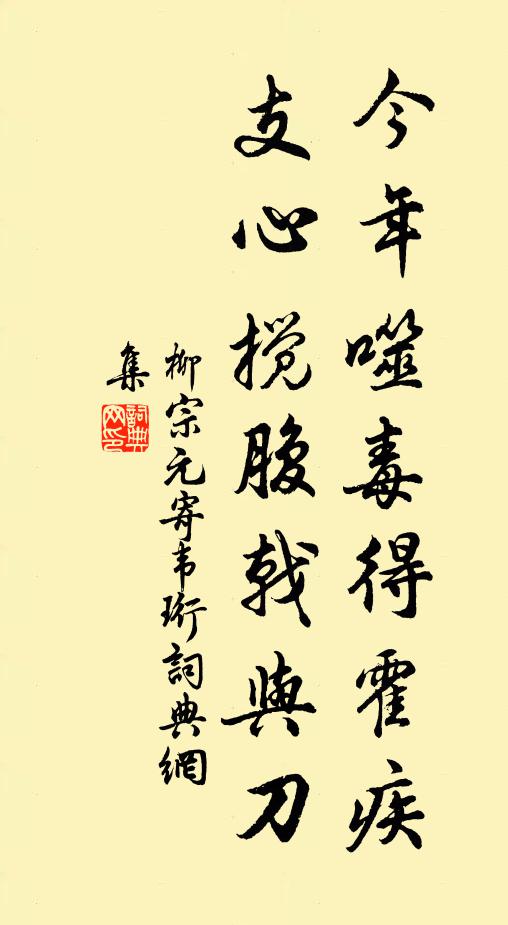 今年噬毒得霍疾
支心搅腹戟與刀
柳宗元寄韦珩詞典網
集
詞典網印